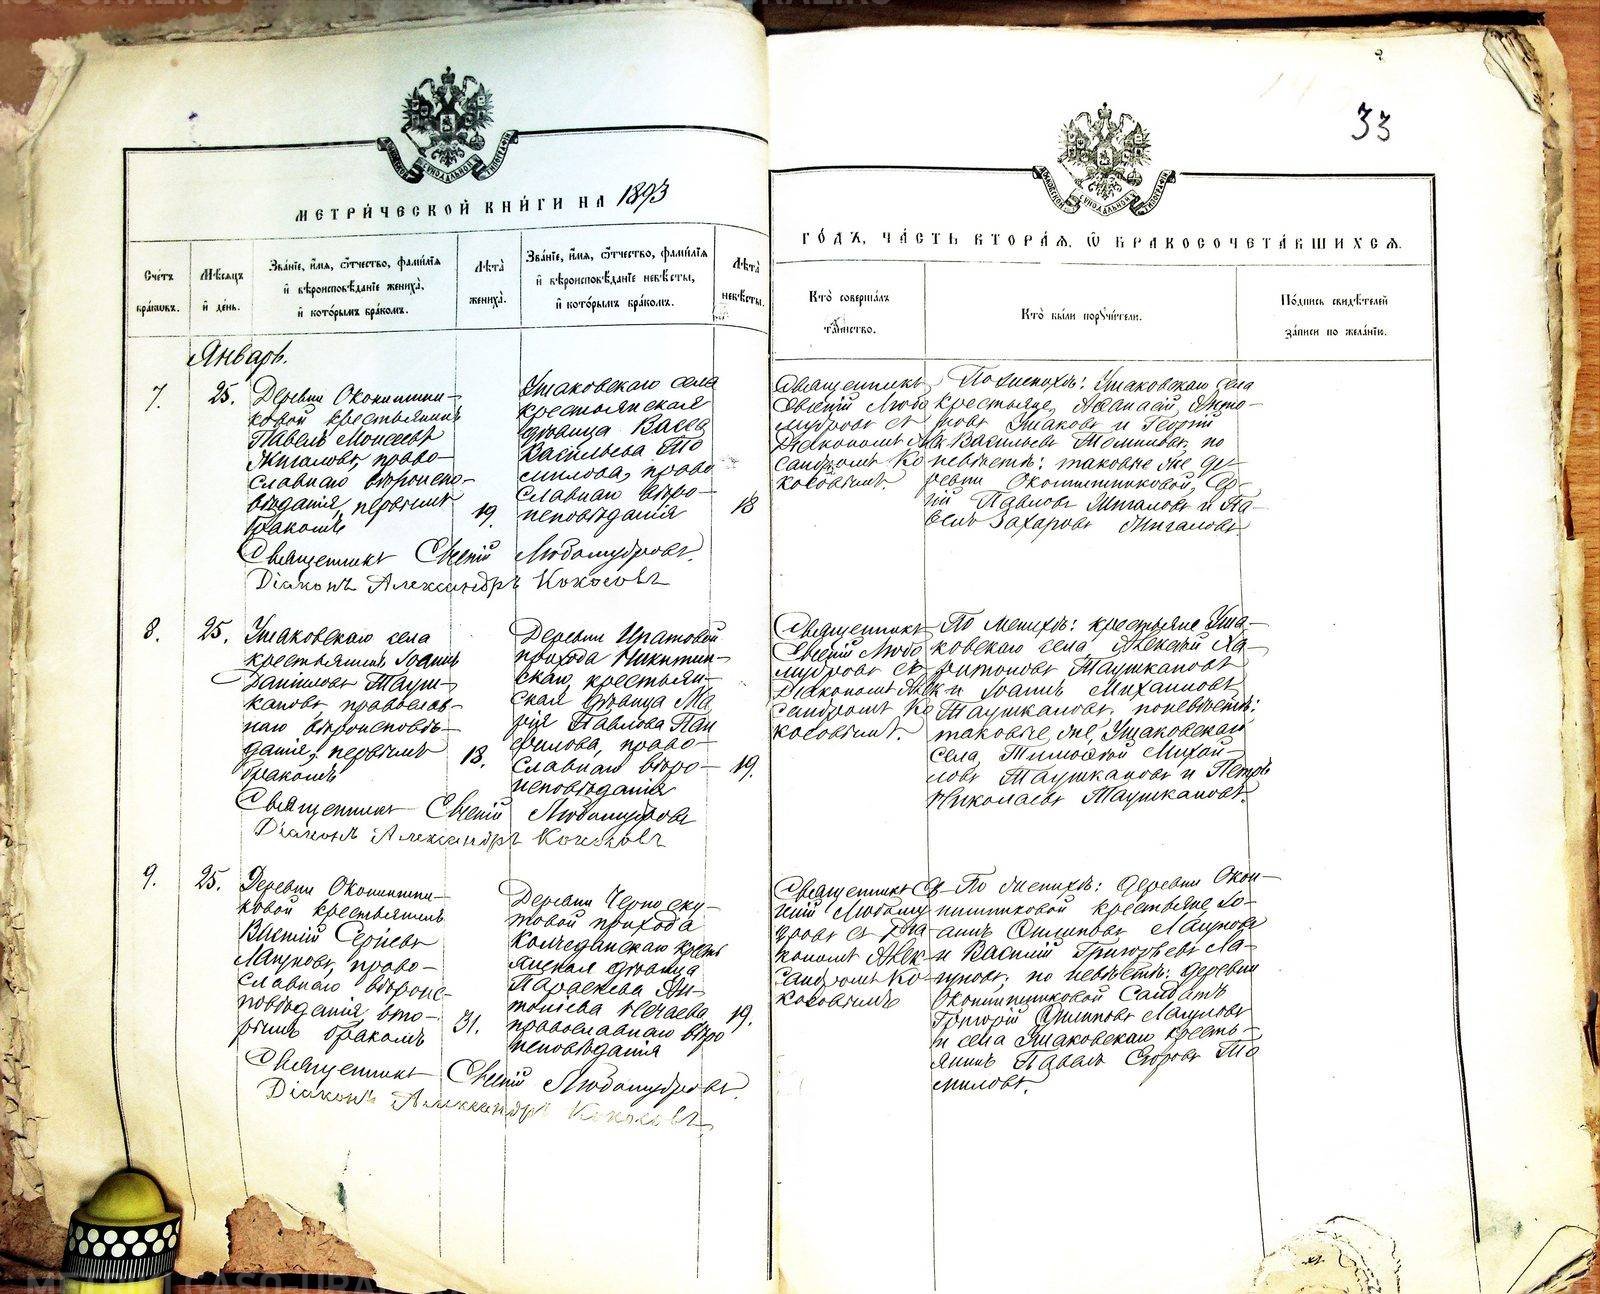 33
МЕТРИ́ЧЕСКОЙ КНИ́ГИ НА 1893
ГО́ДЪ, ЧА́СТЬ ВТОРА́Я, Ѿ БРАКОСОЧЕТА́ВШИХСЯ.
Сче́тъ
бра́кωвъ.
Мѣ́сяцъ
и҆ де́нь.
Зва́нїе, и҆́мя, ѻ҆́тчество, фами́лїя
и҆ вѣроисповѣ́данїе жениха̀,
и҆ кото́рымъ бра́комъ.
Лѣ̑та
жениха̀.
Зва́нїе, и҆́мя, ѻ҆́тчество, фами́лїя
и҆ вѣроисповѣ́данїе невѣ́сты,
и҆ кото́рымъ бра́комъ.
Лѣ̑та
невѣ́сты.
Кто̀ соверша́лъ
та́инство.
Кто̀ бы́ли порꙋчи́тели.
По́дпись свидѣ́телей
за́писи по жела́нїю.
Январь.
7.
25.
Деревни Окониш­ни-
ковой крестьянинъ
Павелъ Моисеевъ
Жигаловъ, право-
славнаго вѣроиспо-
вѣданія, первымъ
бракомъ
19.
Ушаковскаго села
крестьянская
дѣвица Васса
Васильева То
милова, право
славнаго вѣро-
исповѣданія
18
Священникъ
Евгеній Любо
мудровъ съ
Діакономъ Але
ксандромъ Ко
косовымъ.
По женихѣ: Ушаковскаго села
крестьяне, Аѳанасій Анто-
новъ Ушаковъ и Георгій
Васильевъ Томиловъ, по
невѣстѣ: таковые же де-
ревни Оконишниковой, Сер-
гій Павловъ Жигаловъ и Па-
велъ Захаровъ Жигаловъ.
Священникъ Евгеній Любомудровъ.
Діаконъ Александръ Кокосовъ
8.
25.
Ушаковскаго села
крестьянинъ Іоаннъ
Даніиловъ Тауш-
кановъ, православ-
наго вѣроисповѣ-
данія, первымъ
бракомъ
18.
Деревни Ипатовой
прихода Никитин-
скаго, крестьян-
ская дѣвица Ма
рія Павлова Пан
филова, право-
славнаго вѣро-
исповѣданія
19.
Священникъ
Евгеній Любо
мудровъ съ
Діакономъ Але
ксандромъ Ко
косовымъ.
По женихѣ: крестьяне Уша-
ковскаго села, Алексѣй Ха-
ритоновъ Таушкановъ
и Іоаннъ Михаиловъ
Таушкановъ, по невѣстѣ:
таковые же, Ушаковскаго
села, Тимоѳей Михай-
ловъ Таушкановъ и Петръ
Николаевъ Таушкановъ.
Священникъ Евгеній Любомудровъ
Діаконъ Александръ Кокосовъ
9.
25.
Деревни Оконишни-
ковой крестьянинъ
Василій Сергіевъ
Лагуновъ, право-
славнаго вѣроис-
повѣданія, вто-
рымъ бракомъ
31.
Деревни Черноску-
товой прихода
Колчеданскаго кресть
янская дѣвица
Параскева Ан-
тоніева Нечаева
православнаго вѣро
исповѣданія
19.
Священникъ Ев-
геній Любому
дровъ съ Діа
кономъ Алек
сандромъ Ко-
косовымъ
По женихѣ: деревни Окон-
нишниковой крестьяне Іо-
аннъ Филиповъ Лагуновъ
и Василій Григорьевъ Ла-
гуновъ; по невѣстѣ: деревни
Оконишниковой Солдатъ
Григорій Филиповъ Лагуновъ
и села Ушаковскаго кресть-
янинъ Павелъ Егоровъ То
миловъ.
Священникъ Евгеній Любомудровъ.
Діаконъ Александръ Кокосовъ